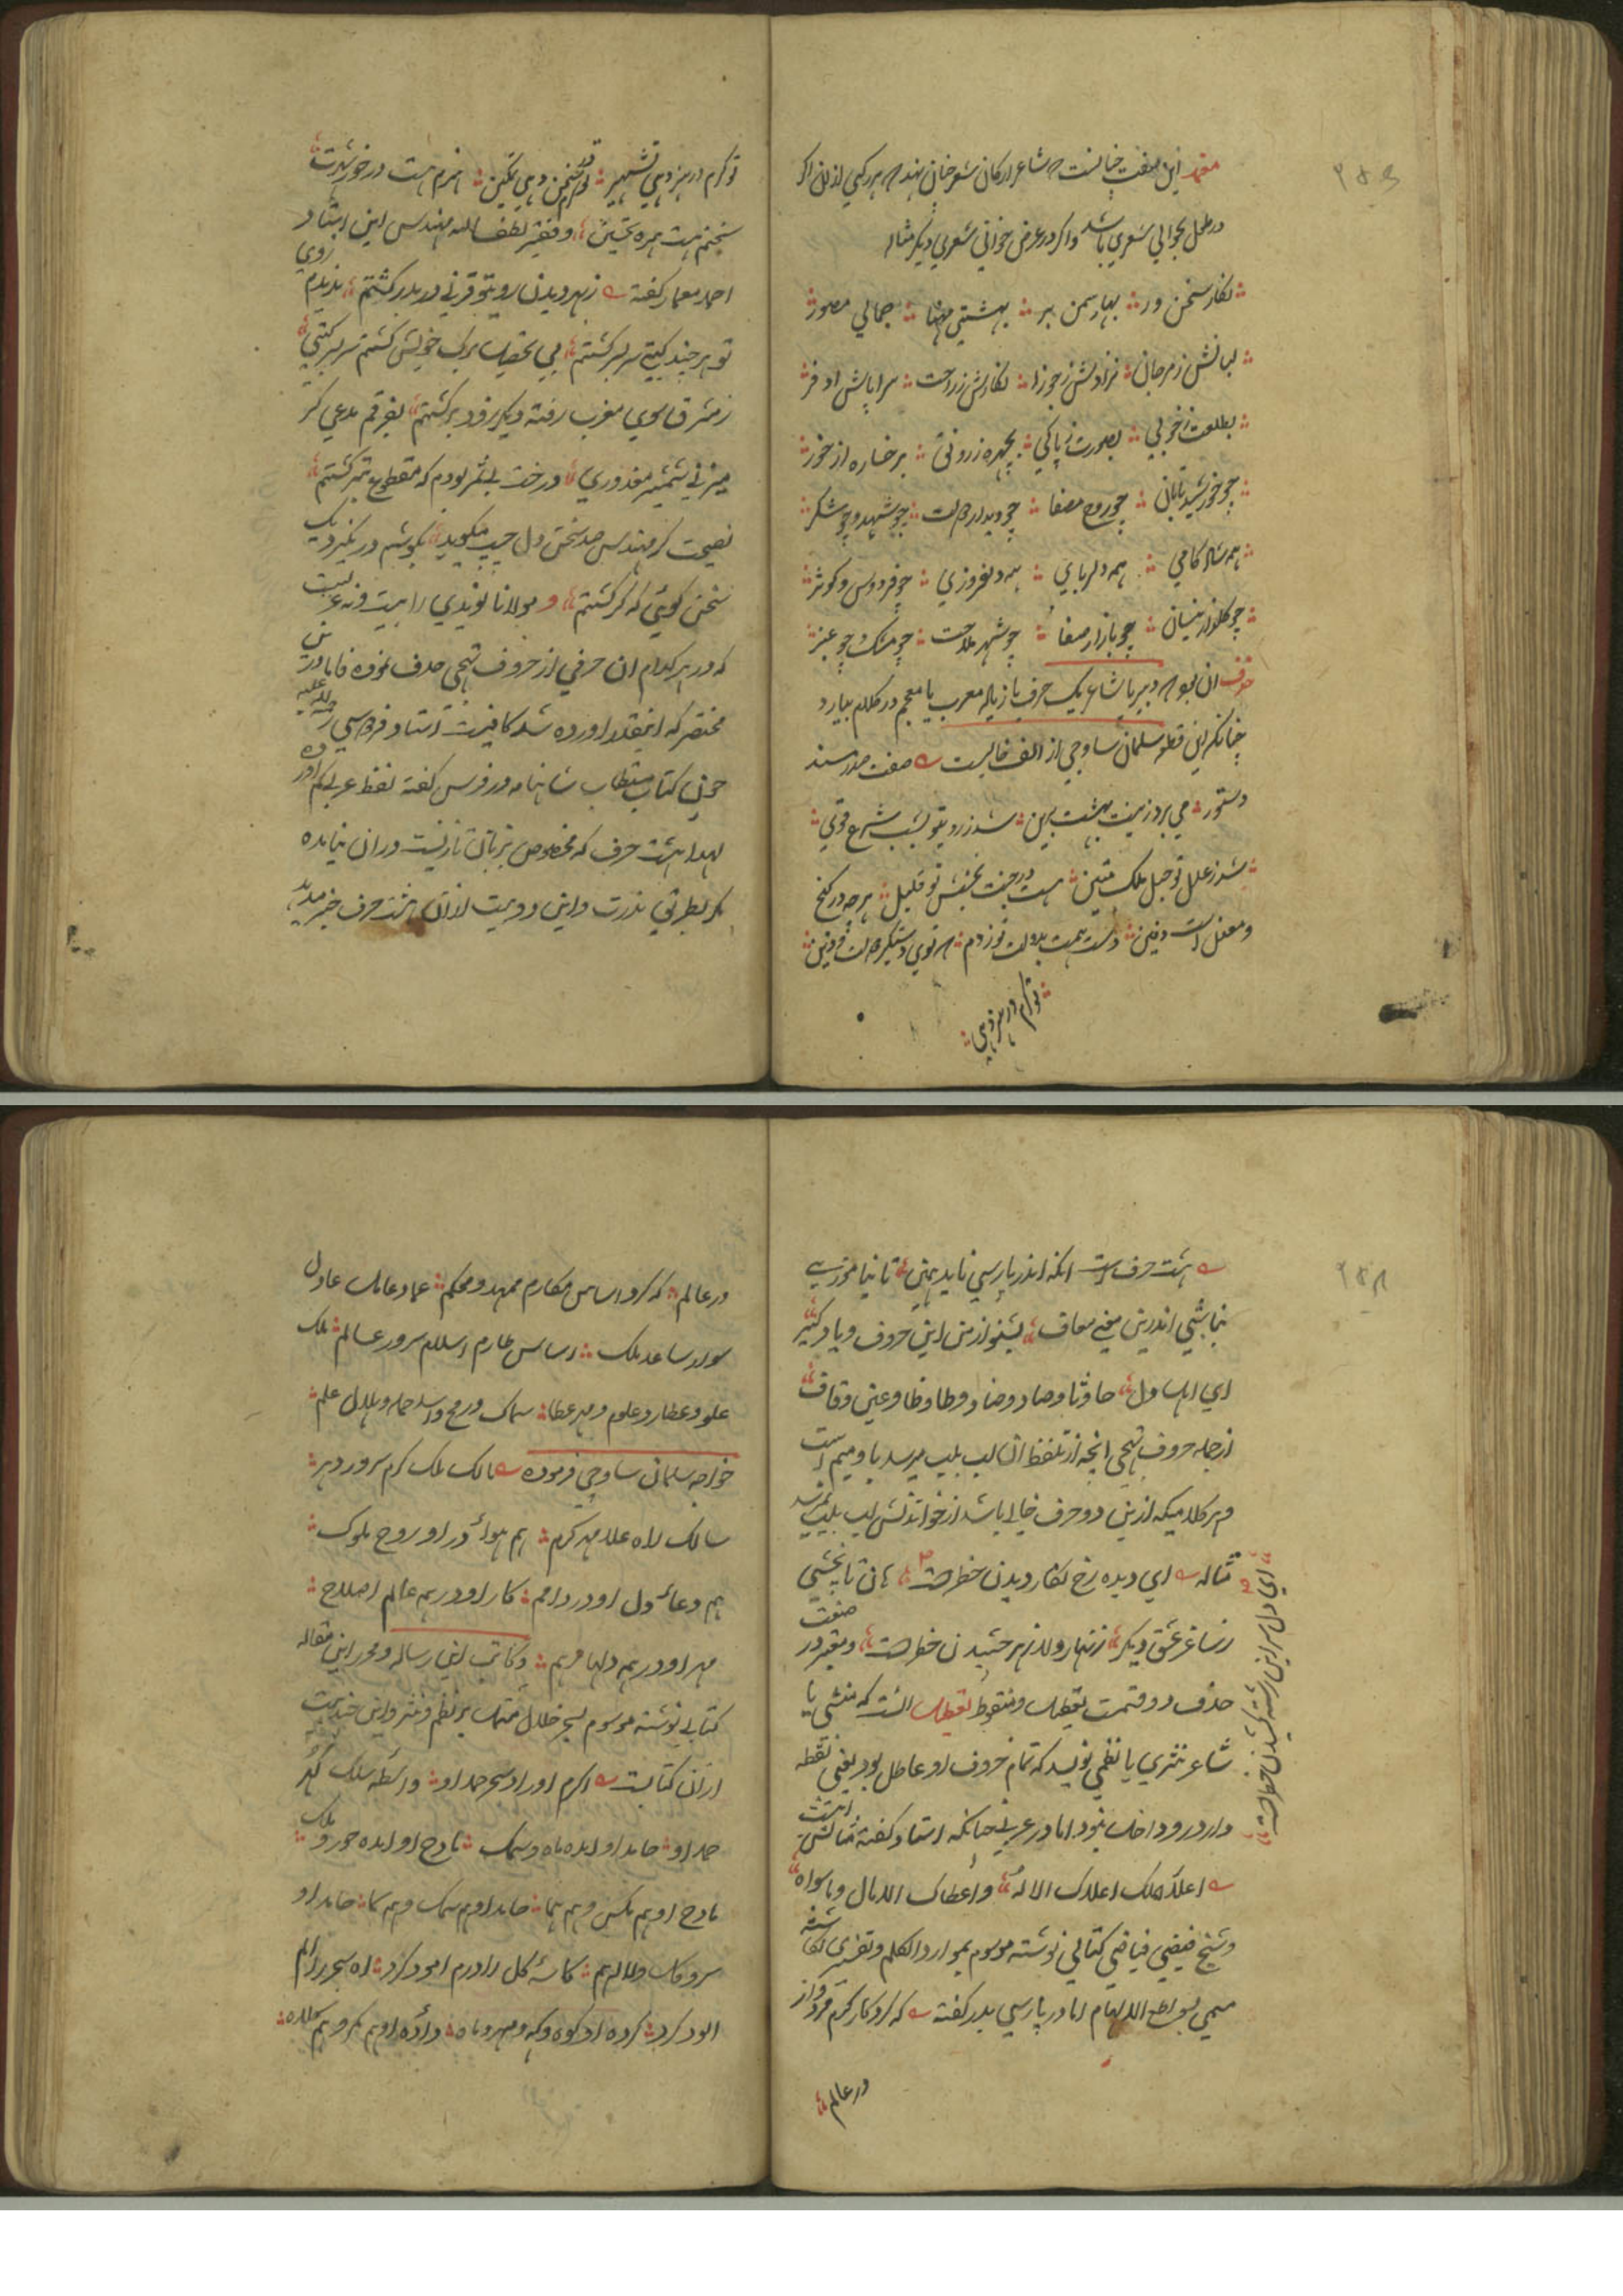 این صفت چنانست که شاعر ارکان شعر چنان نهد که هر رکنی از ان اگر
در طول بخوانی شعری باشد و اگر در عرض خوانی شعری دیگر مثاله
نگار سخن ور بهار سمن بر بهشتی مهنا جمالی مصور
لبانش ز مرجان نژادش ز جوزا نگارش ز راحت سراپایش از فر
بطلعت ز خوبی بصورت ز پاکی بچهره ز رونق برخساره از خور
چو خورشید تابان چو روح مصفا چو دیدار دولت چو شهد و چو شکر
همه شاد کامی همه دلربایی همه دلفروزی چو فردوس و کوثر
چو گلزار نیسان چو بازار صفا چو شهر ملاحت چو مشک و چو عنبر
حذف ان بود که دبیر یا شاعر یک حرف یا زیاده معرب یا معجم در کلام نیارد
چنانکه این قطعه سلمان ساوجی از الف خالیست صفت صدر مسند
دستور می برد زینت بهشت برین شد ز رویتو بشب شرع قوی
شد ز عدل تو حبل ملک متین هست در جنب بخشش تو قلیل هرچه در گنج
و معدن است دفین دست همت بدولت تو زدم که توی دستگیر دولت و دین
تو کرام در هنر دهی
تو کرام در هنر دهی تشهیر تو کرم در سخن دهی تمکین هنرم هست در خور شهرت
سخنم هست بهره تحسین و فقیر لطف الله مهندس ابن استاد
احمد معمار گفته ز بهر دیدن رویتو قرنی در بدر گشتم ندیدم روی
تو هر چند گیتی سربسر گشتم پی تحصیل برک خویش گشتم سربسر گیتی
ز مشرق سوی مغرب رفته دیگر زود برگشتم بفرقم مدعی گر
میزنی شمشیر معذوری درخت بی ثمر بودم که مقطوع تبر گشتم
نصیحت گر مهندس صد سخن دل چسپ میگوید بگوشم در نگیرد یک
سخن گوئی که کر گشتم و مولانا نویدی را بیست و نه غزلیست
که در هر کدام ان حرفی از حروف تهجی حذف نموده فاما درین
مختصر که اینقدر اورده شد کافیست استاد فردوسی رحمة الله علیه
چون کتاب مستطاب شاهنامه در فرس گفته لفظ عربی کم اورده
لهذا هشت حرف که مخصوص بزبان تازیست در ان نیامده
مگر بطریق ندرت و این دو بیت ازان هشت حرف خبر میدهد
هشت حرف است انکه اندر پارسی ناید همی تا نیاموزی
نباشی اندرین معنی معاف بشنو از من این حروف و یاد گیر
ای اهل دل حا و ثا و صاد و ضاد و طا و ظا و عین و قاف
از جمله حروف تهجی انچه از تلفظ ان لب بلب میرسد با و میم است
و هر کلامیکه ازین دو حرف خالی باشد از خواندنش لب بلب نمیرسد
مثاله ای دیده رخ نگار دیدن خطر است هان تا نچشی
ای دل سر این رشته کشیدن خطر است
ز ساغر عشق دیگر زنهار دلا زهر چشیدن خطر است و معتبر در صنعت
حذف دو قسمت تعطیل و منقوط تعطیل انست که منشی یا
شاعر نثری یا نظمی نویسد که تمام حروف او عاطل بود یعنی نقطه
دار در و داخل نبود اما در عربی چنانکه استاد گفته مثالش اینست
اعلاک ملک اعلاک الاله و اعطاک المال و ما سواه
و شیخ فیضی فیاضی کتابی نوشته موسوم بموارد الکلم و تفسیری نگاشته
مسمی بسواطع الالهام اما در پارسی بدر گفته که کرد کار کرم مردوار
در عالم
در عالم که کرد اساس مکارم ممهد و محکم عماد عامل عادل
سوار ساعد ملک اساس طارم اسلام سرور عالم ملک
علو و عطارد علوم و مهر عطا سماک و رمح و اسد حمله و هلال علم
خواجه سلمان ساوجی فرموده مالک ملک کرم سرور دهر
سالک راه علا مهر کرم هم هوا در او روح ملوک
هم دعا دل او در دامم کار او در همه عالم اصلاح
مهر او در همه دلها مرهم و کاتب این رساله و محرر این مقاله
کتابی نوشته موسوم بسحر حلال مشتمل بر نظم و نثر و این چند بیت
ازان کتابست
حمد او حامد او امده ماه و سمک مادح او امده حور و ملک
مادح او هم مکس و هم هما حامد او هم سمک و هم سما حامد او
سرو و گل و لاله هم کاسه گل را در م الود کرد
الود کرد کرده او کوه و که و مهر و ماه داده او هم کمر و هم کلاه